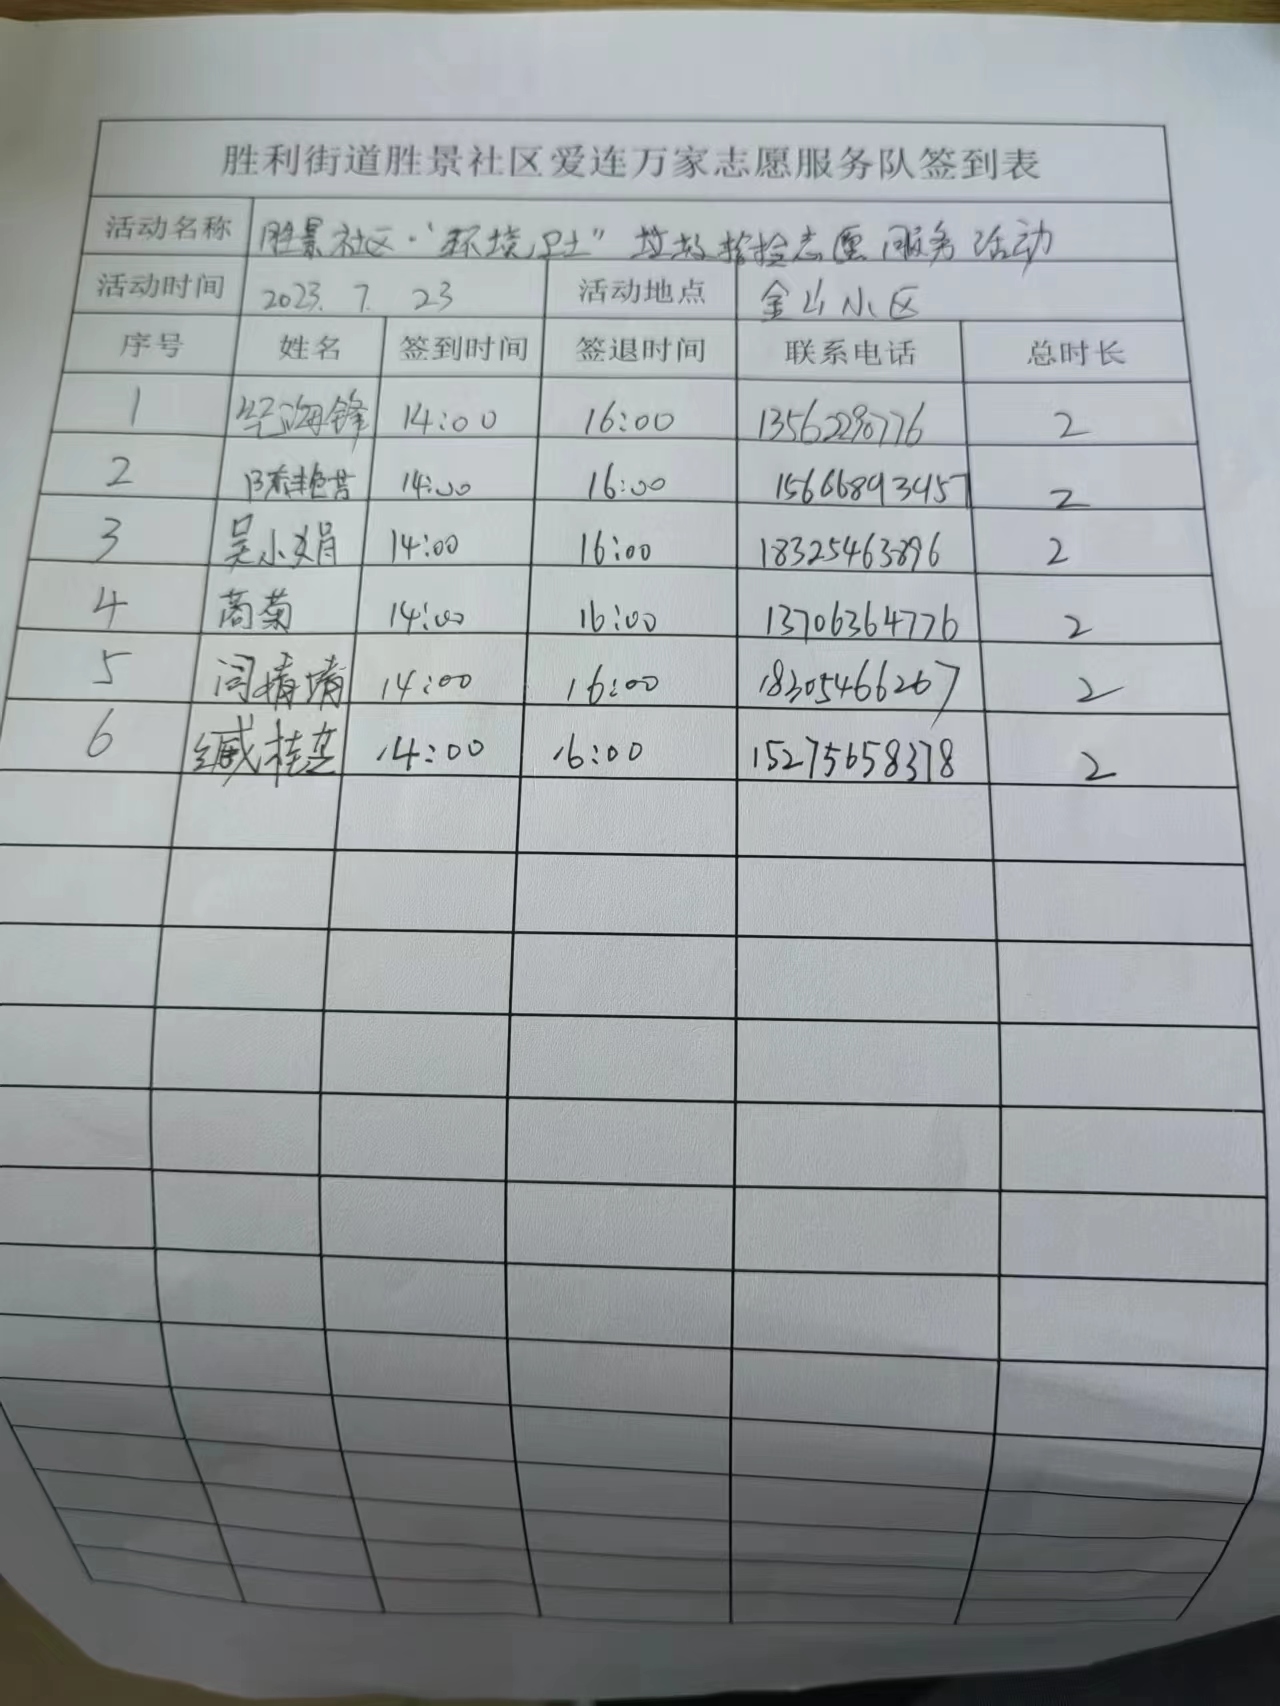 胜利街道胜景社区爱连万家志愿服务队签到表
活动名称 胜景社区·"环境卫士"垃圾捡捡志愿服务活动
活动时间 2023.7.23 活动地点 金山小区
序号 姓名 签到时间 签退时间 联系电话 总时长
1 海锋 14:00 16:00 13562290776 2
2 14:00 16:00 15666893457 2
3 吴小娟 14:00 16:00 18325463896 2
4 菊 14:00 16:00 13706364776 2
5 闫婧婧 14:00 16:00 18305466267 2
6 桂 14:00 16:00 15275658378 2